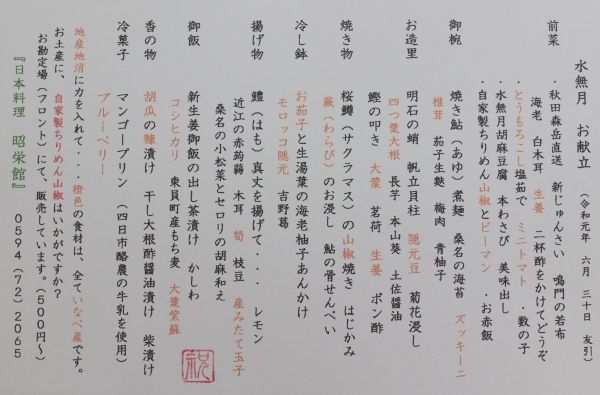 水無月　お献立　（令和元年　六月　三十日　友引）
前菜　・秋田森岳直送　新じゅんさい　鳴門の若布
海老　白木耳　生姜　二杯酢をかけてどうぞ
・とうもろこし塩茹で　ミニトマト　・数の子
・水無月胡麻豆腐　本わさび　美味出し
・自家製ちりめん山椒とピーマン　・お赤飯
御椀　焼き鮎（あゆ）煮麺　桑名の海苔　ズッキーニ
椎茸　茄子生麩　梅肉　青柚子
お造里　明石の蛸　帆立貝柱　隠元豆　菊花浸し
四つ葉大根　長芋　本山葵　土佐醤油
鰹の叩き　大葉　茗荷　生姜　ポン酢
焼き物　桜鱒（サクラマス）の山椒焼き　はじかみ
蕨（わらび）のお浸し　鮎の骨せんべい
冷し鉢　お茄子と生湯葉の海老柚子あんかけ
モロッコ隠元　吉野葛
揚げ物　鱧（はも）真丈を揚げて・・・　レモン
近江の赤蒟蒻　木耳　筍　枝豆　産みたて玉子
桑名の小松菜とセロリの胡麻和え
御飯　新生姜御飯の出し茶漬け　かしわ
コシヒカリ　東員町産もち麦　大葉紫蘇
香の物　胡瓜の糠漬け　干し大根酢醤油漬け　柴漬け
冷菓子　マンゴープリン　（四日市酪農の牛乳を使用）
ブルーベリー
地産地消に力を入れて・・・橙色の食材は、全ていなべ産です。
お土産に、自家製ちりめん山椒はいかがですか？
お勘定場（フロント）にて、販売しています。（５００円～）
『日本料理　昭栄館』　０５９４（７２）２０６５
祝